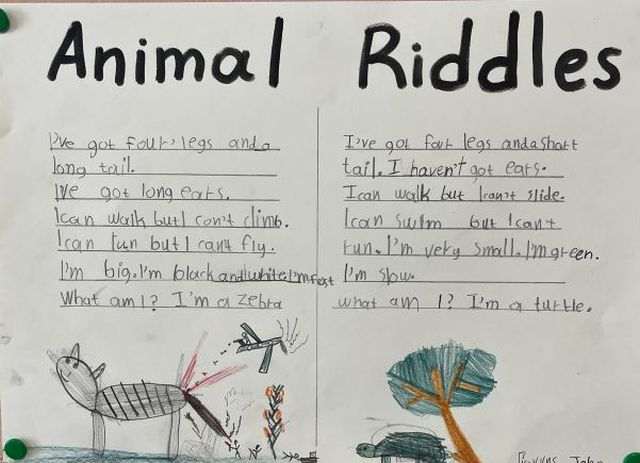 Animal Riddles
I've got four legs and a
long tail.
I've got long ears.
I can walk but I can't climb.
I can run but I can't fly.
I'm big. I'm black and white. I'm fast
What am I? I'm a zebra
I've got four legs and a short
tail. I haven't got ears.
I can walk but I can't slide.
I can swim but I can't
run. I'm very small. I'm green.
I'm slow.
what am I? I'm a turtle.
John